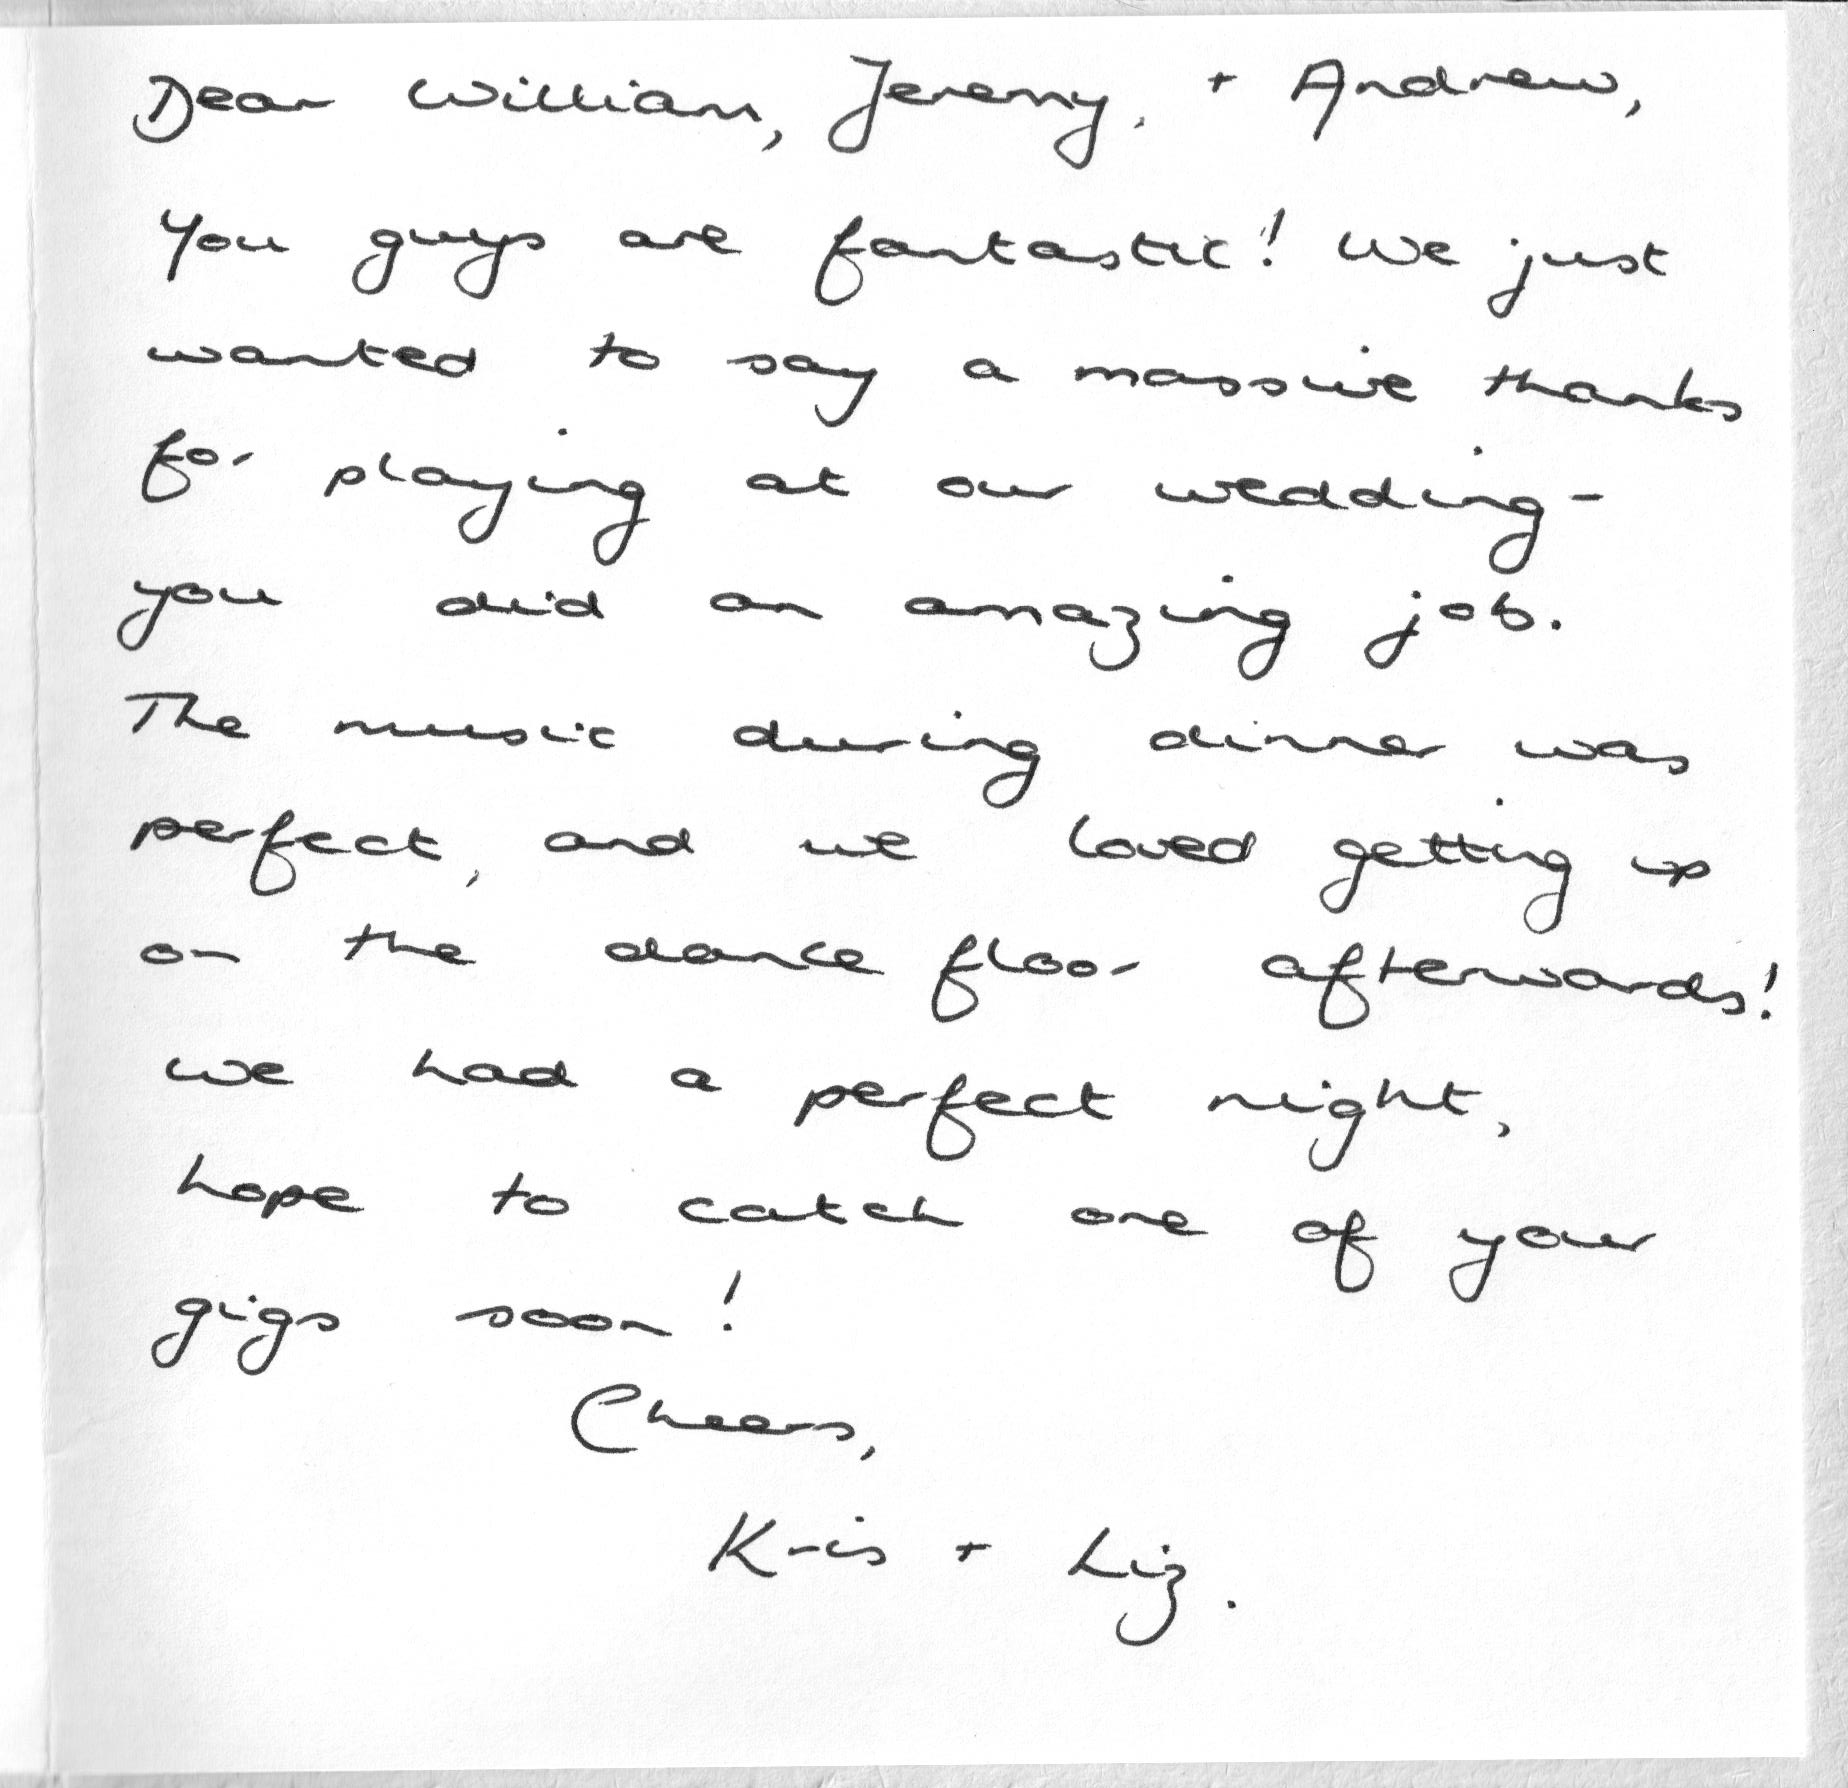 Dear William, Jeremy, + Andrew,
You guys are fantastic! We just
wanted to say a massive thanks
for playing at our wedding -
you did an amazing job.
The music during dinner was
perfect, and we loved getting up
on the dance floor afterwards!
We had a perfect night,
hope to catch one of your
gigs soon!
Cheers,
Kris + Liz.